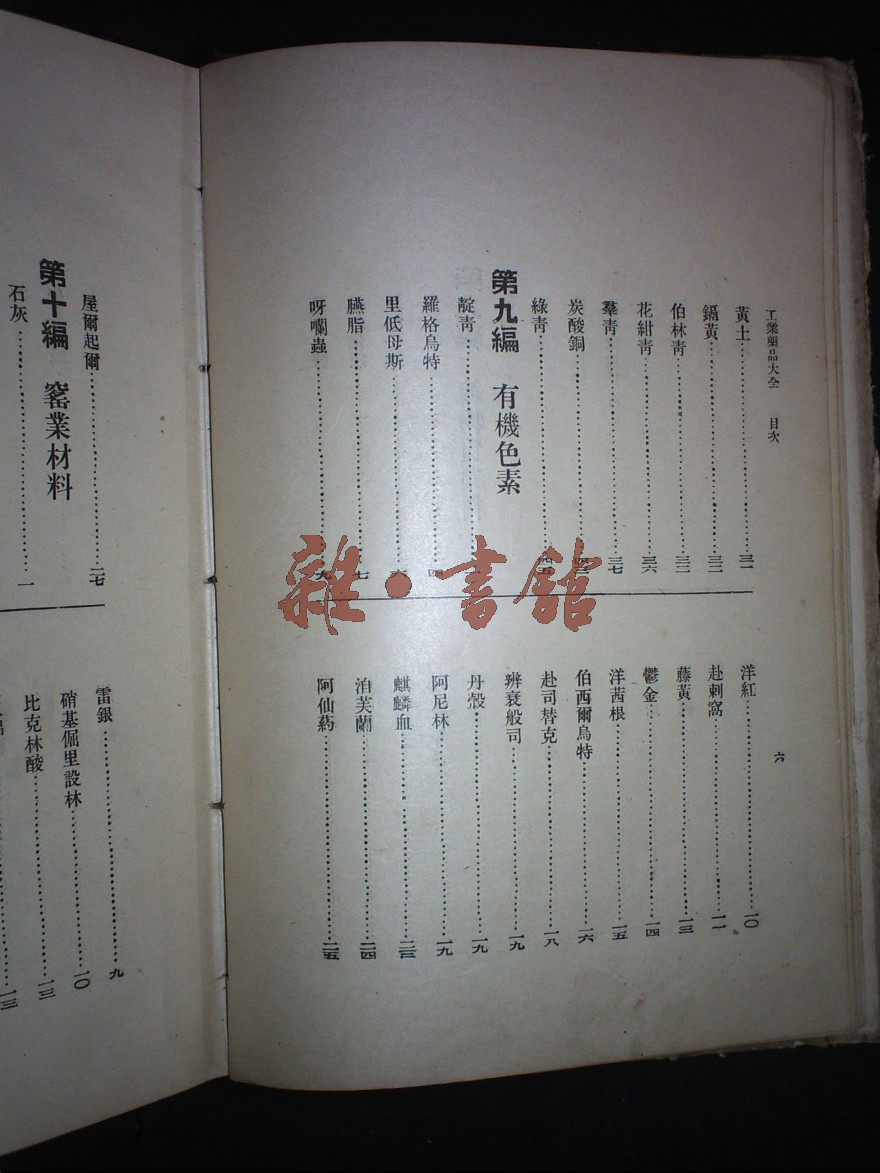 工業藥品大全 目次 六
黃土 三一
鎘黃
伯林青
花紺青 三六
羣青 三七
炭酸銅
綠青 四五
第九編 有機色素
靛青
羅格烏特 四
里低母斯
臙脂 七
呀囒蟲 九
洋紅 一〇
赴剌窩 一一
藤黃 一三
鬱金 一四
洋茜根 一五
伯西爾烏特 一六
赴司替克 一八
辨衰般司 一九
丹殼 一九
阿尼林 一九
麒麟血 二三
洎芙蘭 二四
阿仙葯 二五
屋爾起爾 二七
第十編 窰業材料
石灰 一
雷銀 九
硝基倔里設林 一〇
比克林酸 一三
一三
雜·書館